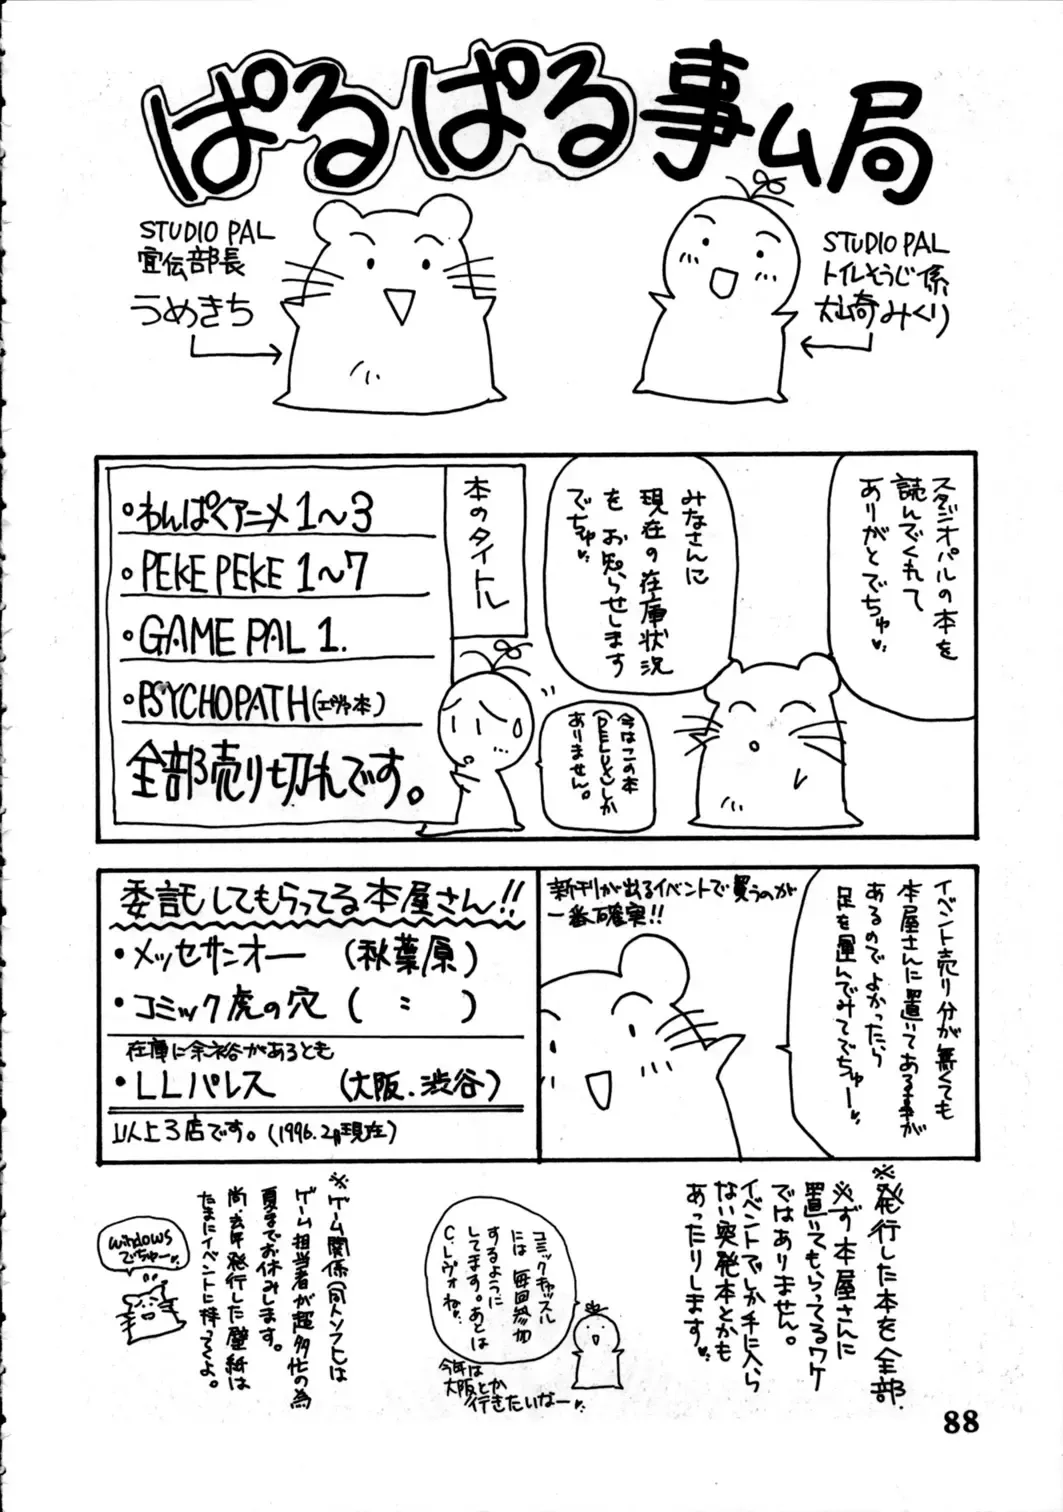 ぱるぱる事ム局
STUDIO PAL
宣伝部長
うめきち
STUDIO PAL
トイレそうじ係
犬山奇みくり
スタジオパルの本を
読んでくれて
ありがとでちゅ
みなさんに
現在の在庫状況
をお知らせします
でちゅ
今はこの本
しか
ありません。
本のタイトル
・わんぱくアニメ1〜3
・PEKE PEKE 1〜7
・GAME PAL 1.
・PSYCHOPATH(エヴァ本)
全部売り切れです。
イベント売り分が無くても
本屋さんに置いてある事が
あるのでよかったら
足を運んでみてでちゅー
新刊が出るイベントで買うのが
一番確実!!
委託してもらってる本屋さん!!
・メッセサンオー (秋葉原)
・コミック虎の穴 ( 〃 )
在庫に余裕があるとも
・LLパレス (大阪.渋谷)
以上3店です。(1996.2月現在)
※発行した本を全部
※ず本屋さんに
置いてもらってるワケ
ではありません。
イベントでしか手に入ら
ない突発本とかも
あったりします
コミックキャッスル
には毎回参加
するように
してます。あとは
C.レヴォね。
今年は
大阪とか
行きたいなー
※ゲーム関係(同人ソフト)は
ゲーム担当者が超多忙の為
夏までお休みします。
尚、去年発行した壁紙は
たまにイベントに持ってくよ。
windows
でちゅー
88